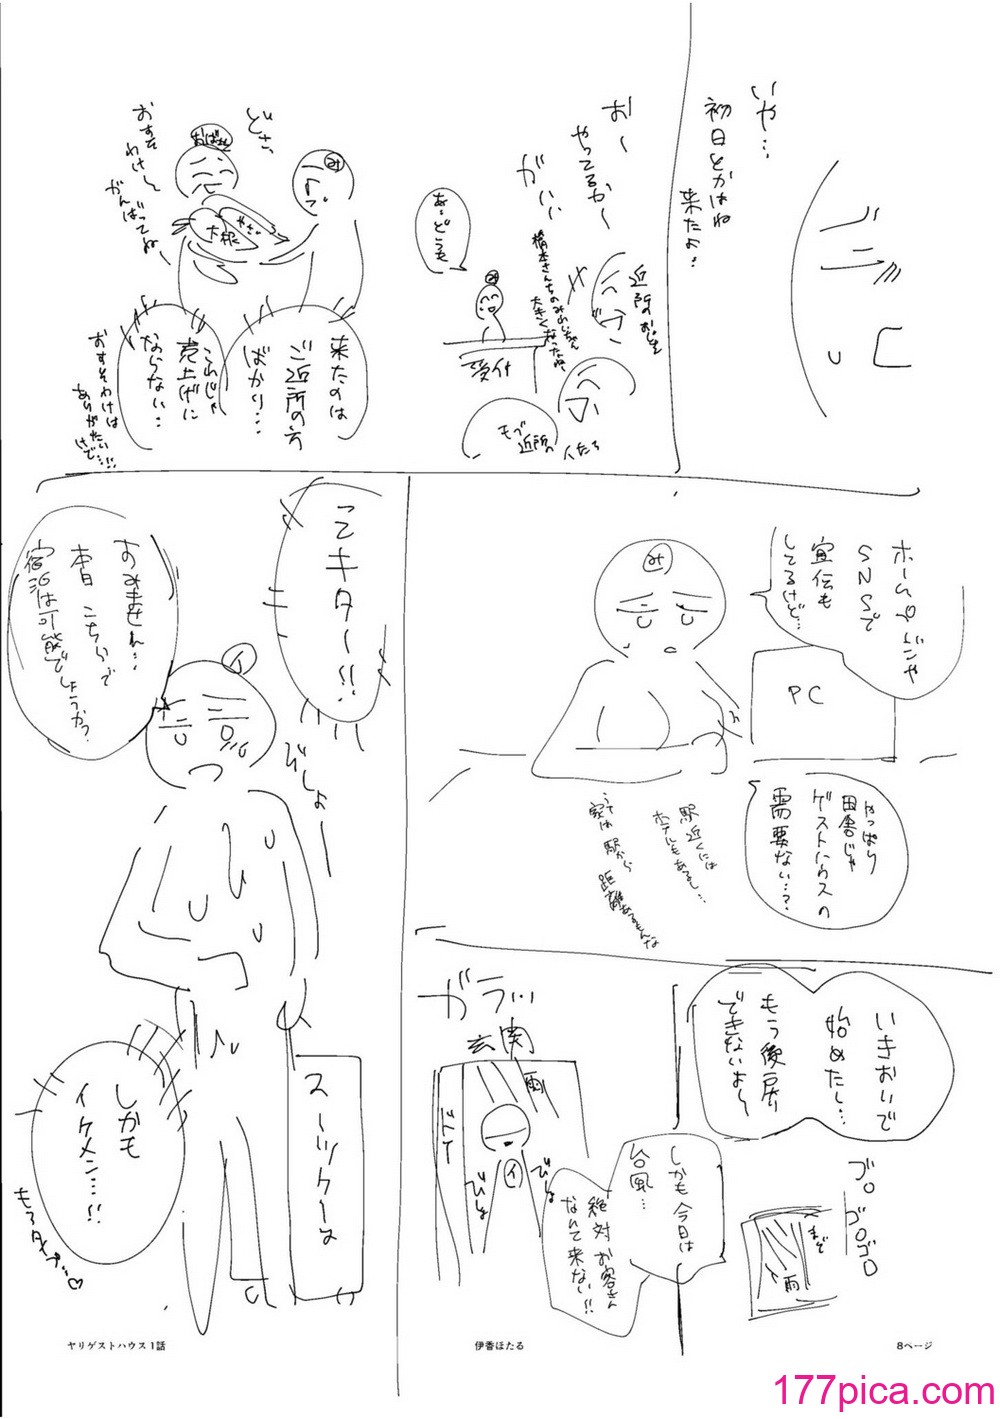 いや…
初日とかはね
来たよ…
おー
やってるかー
がいい
近所の
橋本さんちの
大きくなったね
あ…どうも
み
受付
モブ
近所の
人たち
どさっ
み
おばさん
大根
おすそ
わけ〜
がんばってね〜
来たのは
ご近所の方
ばかり…
これじゃ
売上げに
ならない…
おすそわけは
ありがたい
けど…!!
ホームページや
SNSで
宣伝も
してるけど…
み
PC
やっぱり
田舎じゃ
ゲストハウスの
需要ない…?
駅近くには
ホテルもあるし…
駅から
距離あるもんな
いきおいで
始めたし…
もう後戻り
できないよ〜
ゴロ
ゴロゴロ
まど
雨
しかも今日は
台風…
絶対お客さん
なんて来ない!!
ガラッ…
玄関
雨
イ
びしょ
びしょ
ってキター!!
すみません…
本日こちらで
宿泊は可能でしょうか?
イ
びしょー
スーツケース
しかも
イケメン…!!
もろタイプ…♡
ヤリゲストハウス1話
伊香ほたる
8ページ
177pica.com